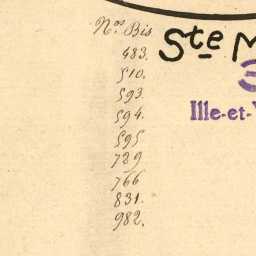 Nos Bis
483.
510.
593
594.
595
729
766
831.
982.
Ste M
Ille-et-